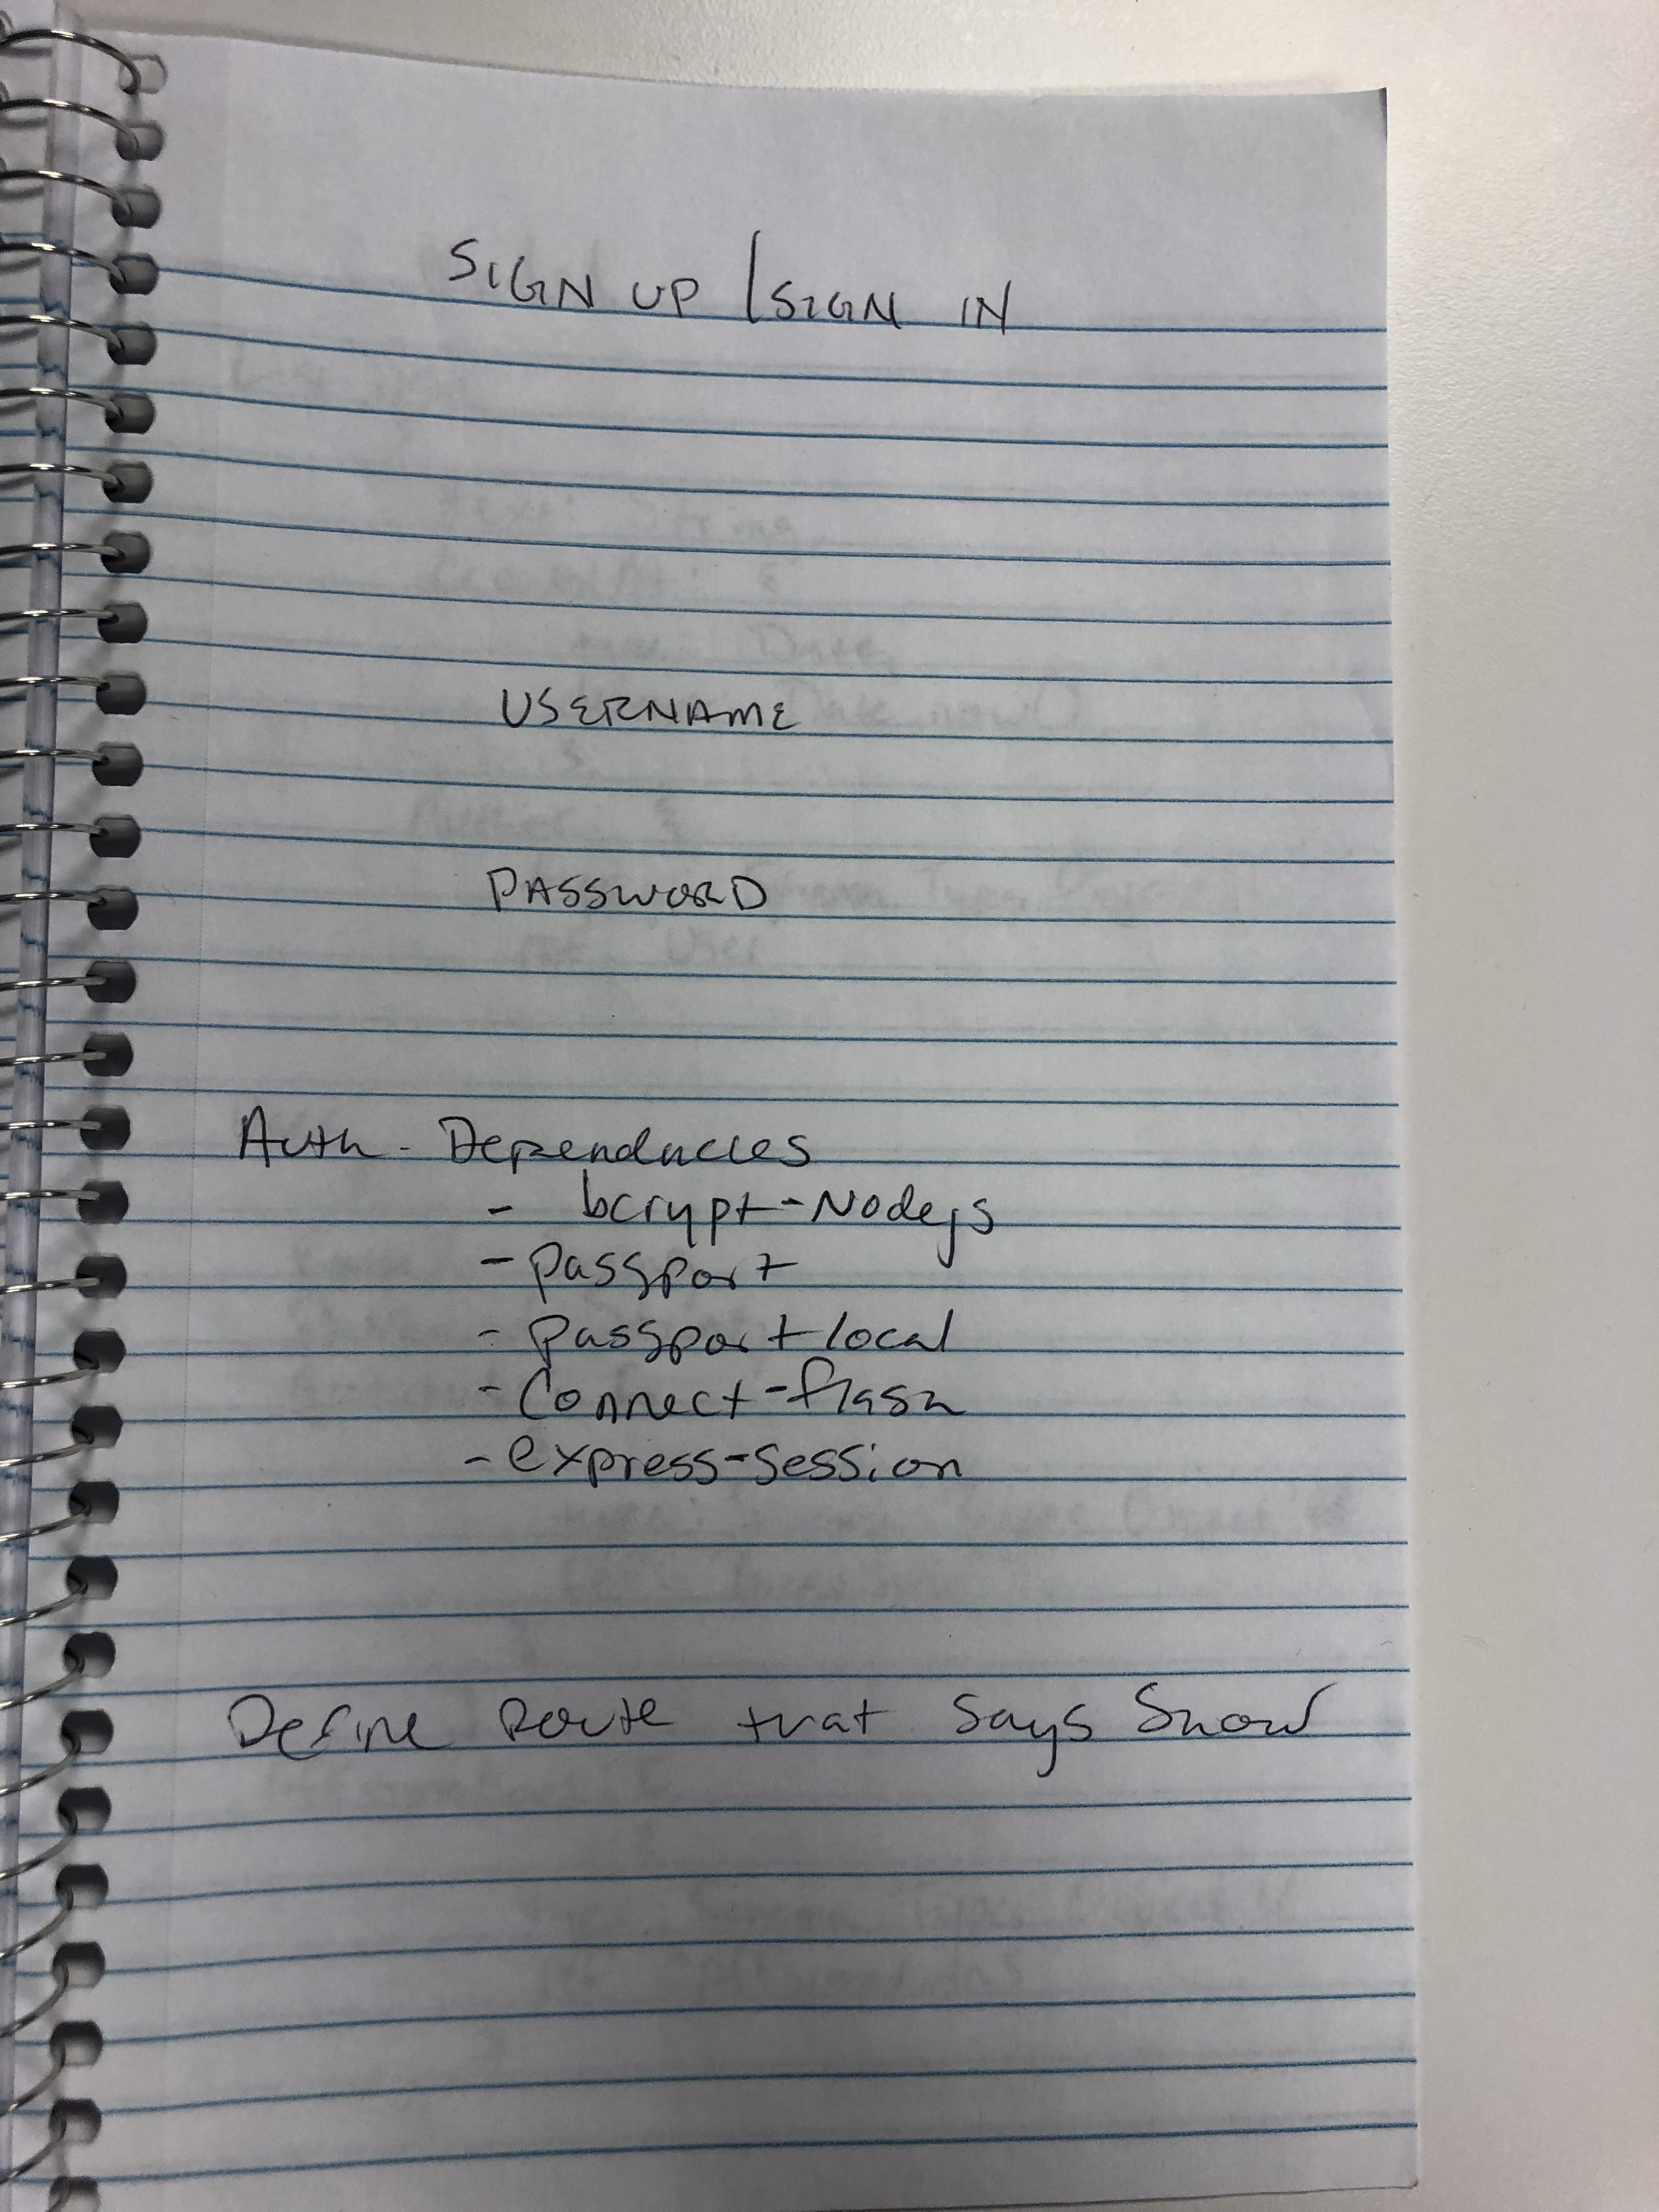 SIGN UP / SIGN IN
USERNAME
PASSWORD
Auth - Dependacies
- bcrypt-Nodejs
- passport
- passport local
- Connect-flash
- express-session
Define Route that says Show